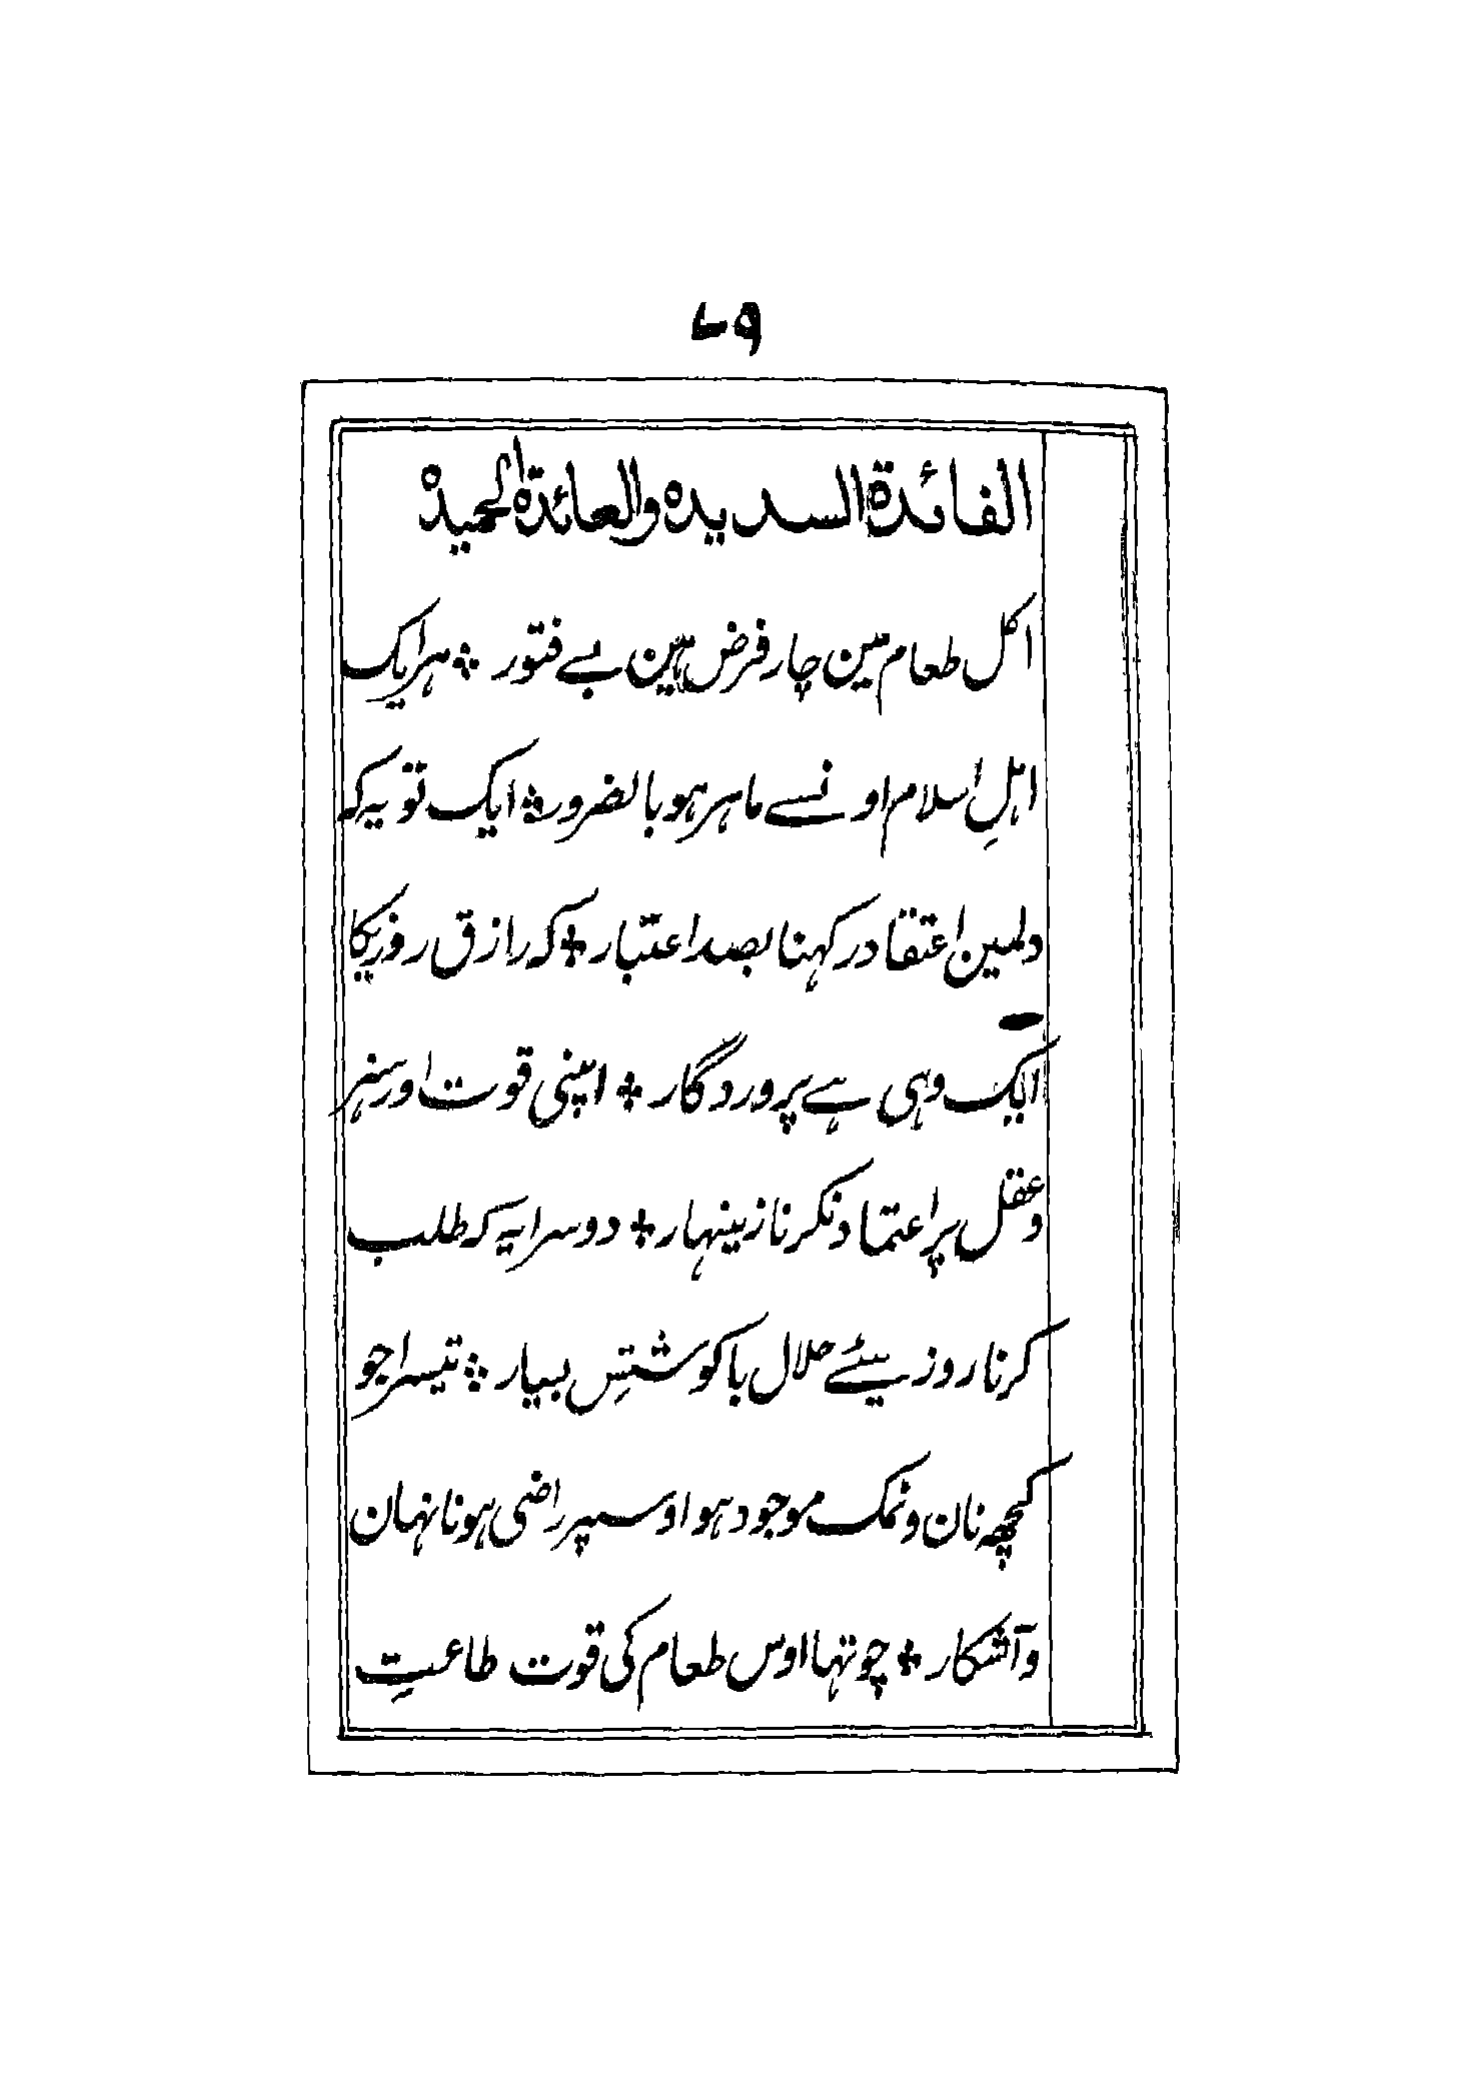 ۷۹
الفائدة السدیده والعائدة الحمیده
اکل طعام مین چار فرض ہین بے فتور ؞ ہر ایک
اہلِ اسلام اونسے ماہر ہو بالضرور ؞ ایک تو یہ کہ
دلمین اعتقاد رکہنا بصد اعتبار ؞ کہ رازق روزیکا
ایک وہی ہے پروردگار ؞ اپنی قوت اور ہنر
و عقل پر اعتماد نکرنا زینہار ؞ دوسرا یہ کہ طلب
کرنا روزیئے حلال با کوششِ بسیار ؞ تیسرا جو
کچھہ نان و نمک موجود ہو اوسپر راضی ہونا نہان
و آشکار ؞ چوتہا اوس طعام کی قوت طاعتِ